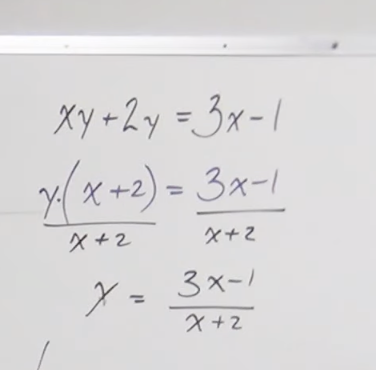 xy+2y=3x-1
y.(x+2)/x+2 = 3x-1/x+2
y = 3x-1/x+2